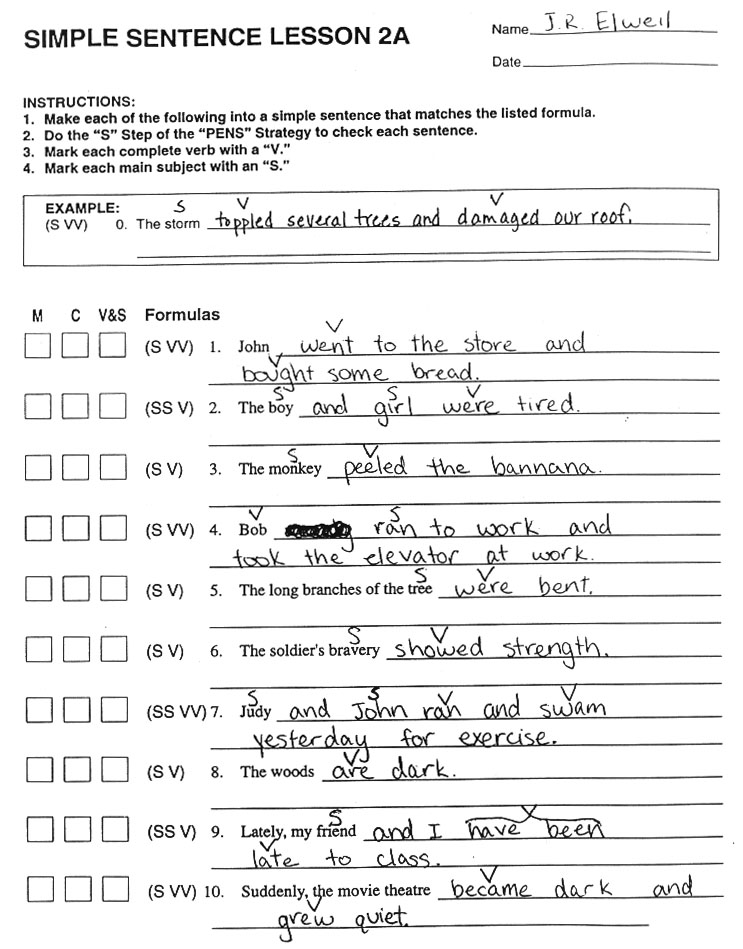 SIMPLE SENTENCE LESSON 2A
Name J.R. Elweil
Date
INSTRUCTIONS:
1. Make each of the following into a simple sentence that matches the listed formula.
2. Do the "S" Step of the "PENS" Strategy to check each sentence.
3. Mark each complete verb with a "V."
4. Mark each main subject with an "S."
EXAMPLE: S V V
(S VV) 0. The storm toppled several trees and damaged our roof.
M C V&S Formulas
V
(S VV) 1. John went to the store and
V
bought some bread.
S S V
(SS V) 2. The boy and girl were tired.
S V
(S V) 3. The monkey peeled the bannana.
V S
(S VV) 4. Bob ran to work and
took the elevator at work.
S V
(S V) 5. The long branches of the tree were bent.
S V
(S V) 6. The soldier's bravery showed strength.
S S V V
(SS VV) 7. Judy and John ran and swam
yesterday for exercise.
V
(S V) 8. The woods are dark.
S V
(SS V) 9. Lately, my friend and I have been
V
late to class.
V
(S VV) 10. Suddenly, the movie theatre became dark and
V
grew quiet.